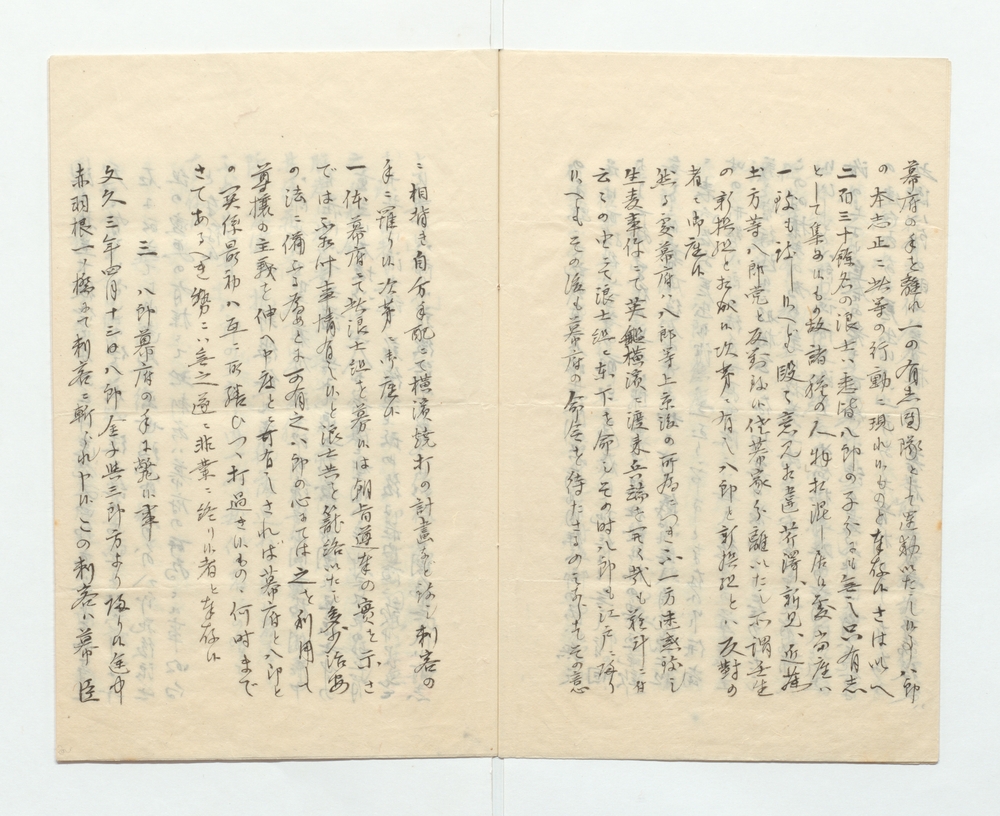 幕府の手を離れ一の有志団隊として運動いたし候事八郎
の本志正に此等の行動に現れ候ものと奉存候さは此へ
二百三十餘名の浪士は悉皆八郎の子分にも無之只有志
として集め候もの故諸種の人物相混し居候處
一致も致し候へとも段々意見相違芹澤、新見、近藤
土方等八郎党と反對致候佐幕家分離いたし所謂壬生
の新撰組と相成候次第に有之八郎と新撰組とは反對の
者に御座候
然る處幕府は八郎等上京後の所為につき一方迷惑致し
生麦事件にて英艦横濱に渡来兵端を開く哉も難計に付
云々の史にて浪士組に東下を命しその時八郎も江戸に帰り
候へともその後も幕府の命令を待たさるのみならすその意
に相背き自分手配にて横濱焼打の計畫なと致し刺客の
手に罹り候次第に御座候
一体幕府にて此浪士組を募候は朝旨遵奉の實を示さ
では不相叶事情有之候と浪士共を籠絡いたし多少治安
の法に備ふる為めとに可有之八郎の心にては之を利用して
尊攘の主義を伸へ申度とに可有之されば幕府と八郎と
の関係最初は互に取繕ひつゝ打過き候ものゝ何時まで
さてあるへき勢には無之遂に非業に終り候者と奉存候
三 八郎幕府の手に斃候事
文久三年四月十三日八郎金子與三郎方より帰り候途中
赤羽根一ノ橋にて刺客に斬られ申候この刺客は幕臣